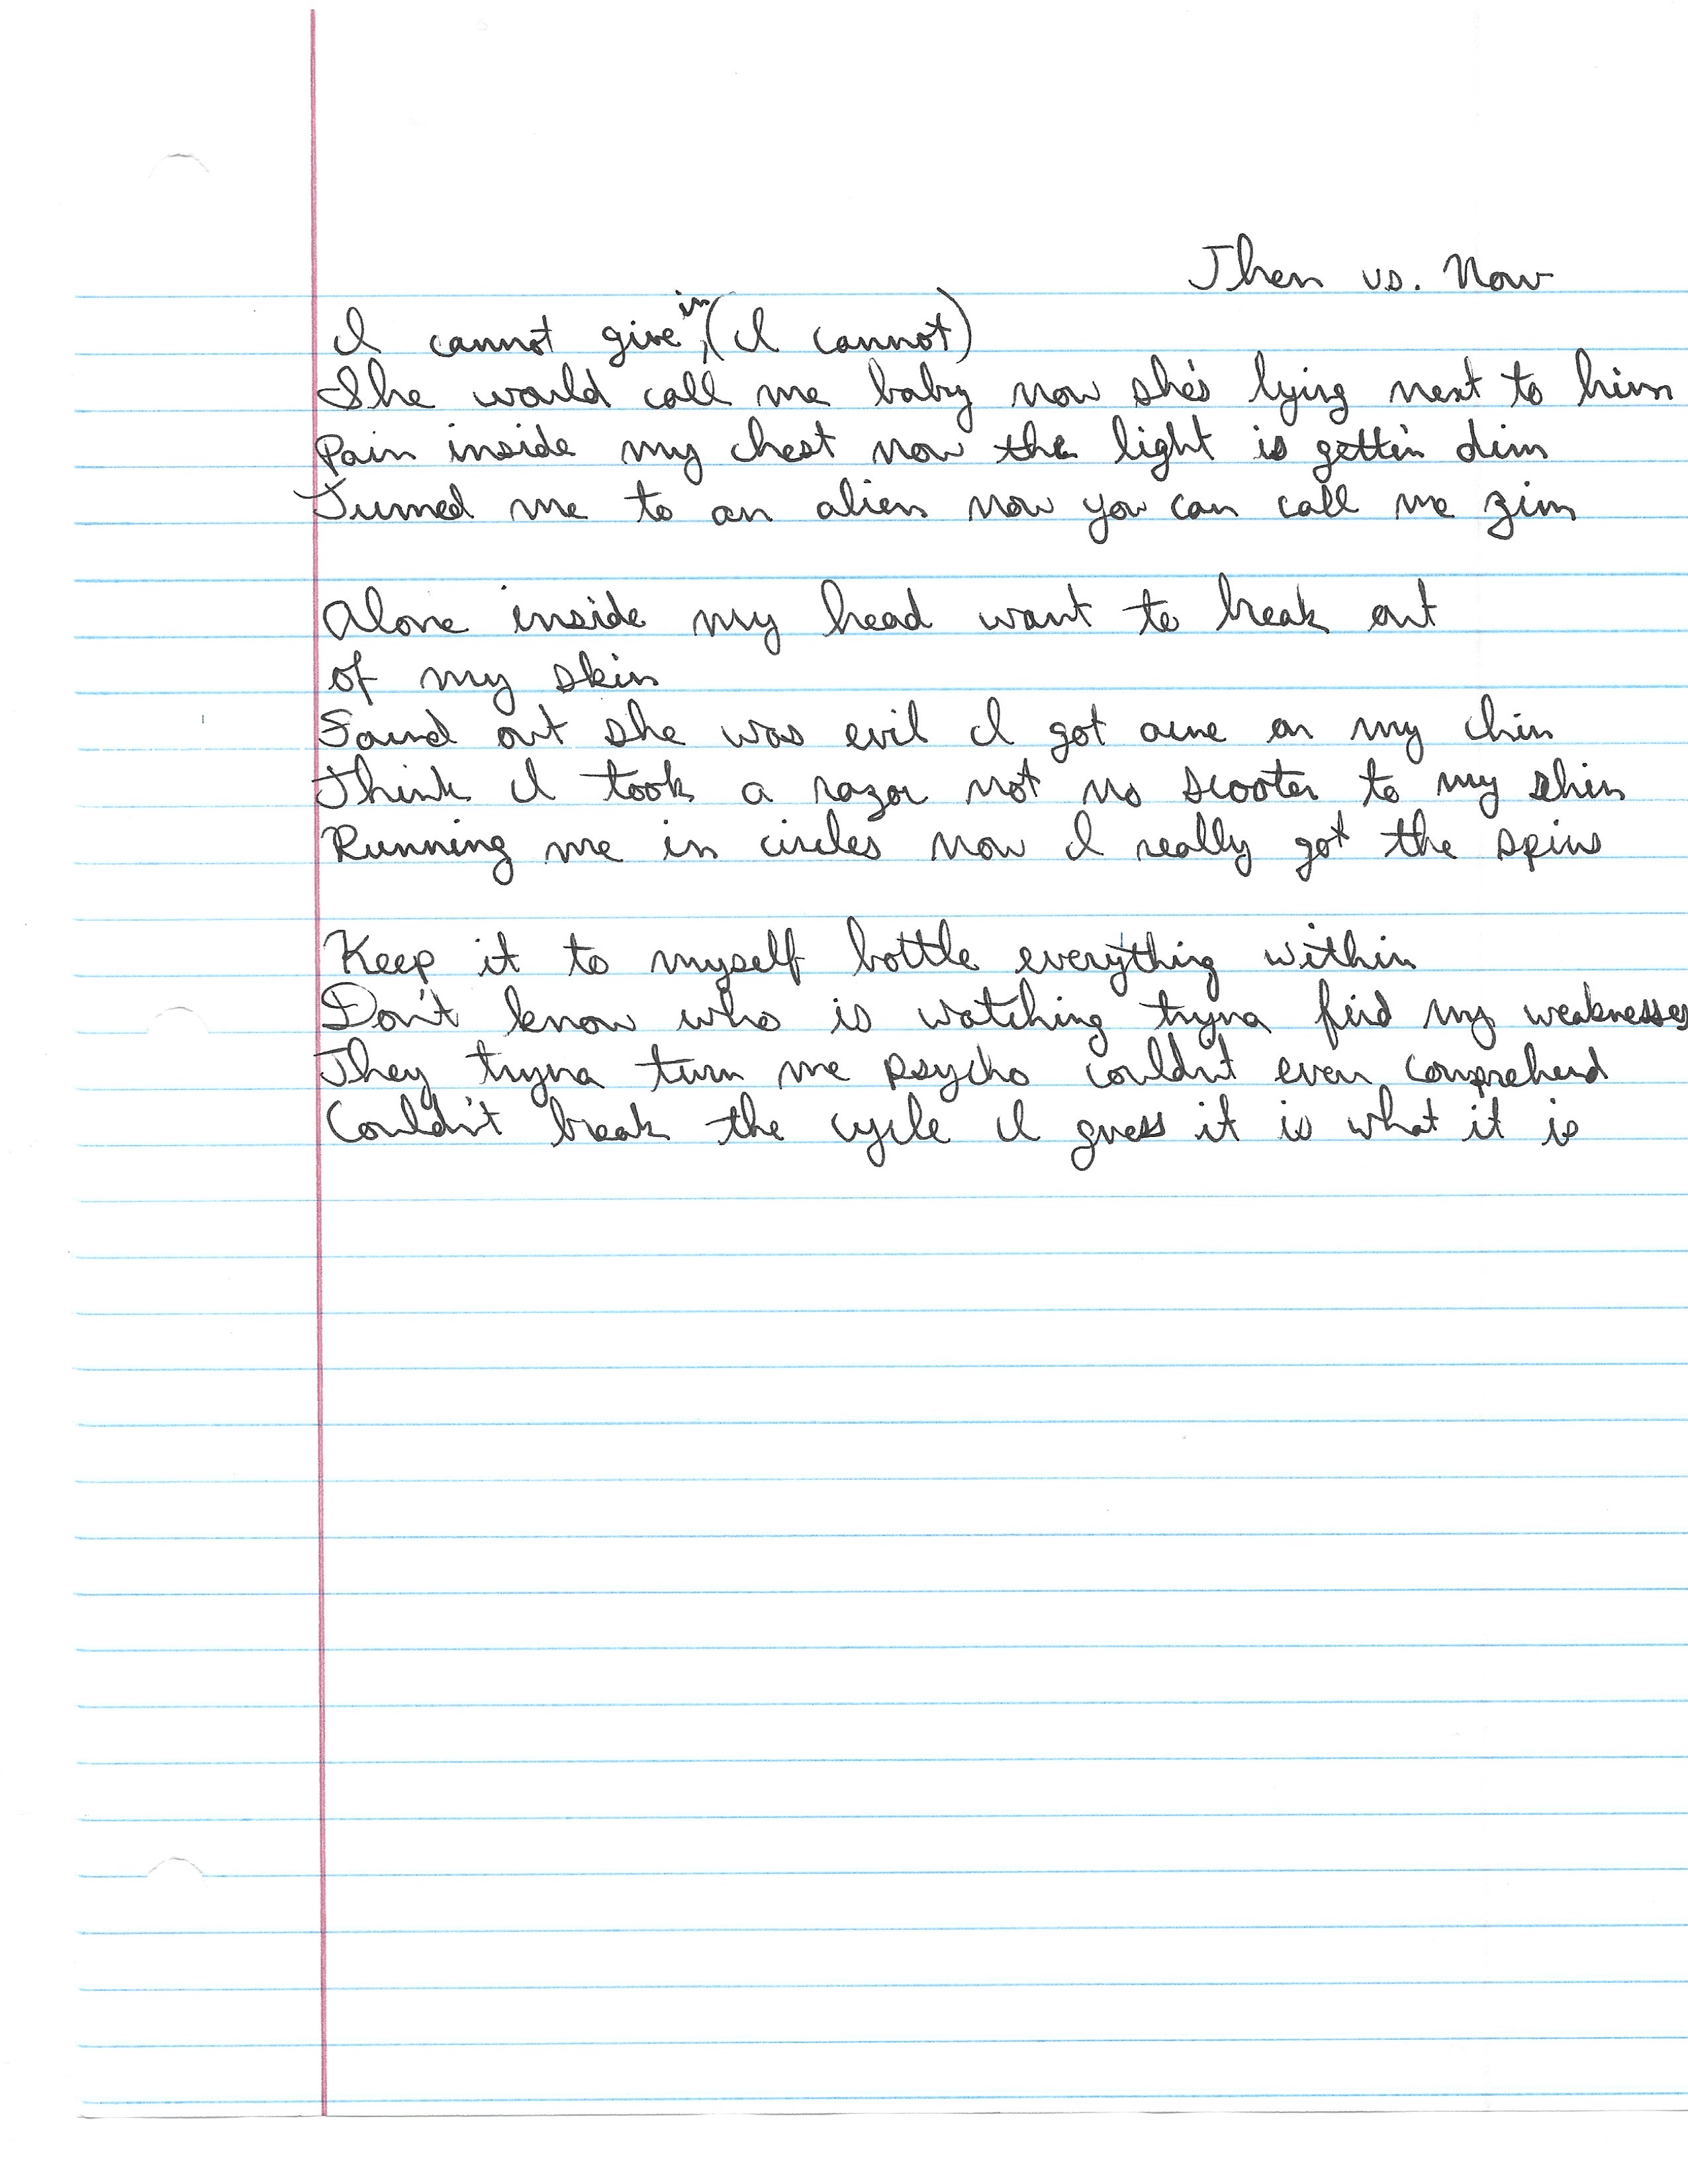 Then vs. Now
I cannot give in, (I cannot)
She would call me baby now she's lying next to him
Pain inside my chest now the light is gettin dim
Turned me to an alien now you can call me zim
Alone inside my head want to break out
of my skin
Found out she was evil I got acne on my chin
Think I took a razor not no scooter to my shin
Running me in circles now I really got the spins
Keep it to myself bottle everything within
Don't know who is watching tryna find my weaknesses
They tryna turn me psycho couldn't even comprehend
Couldn't break the cycle I guess it is what it is